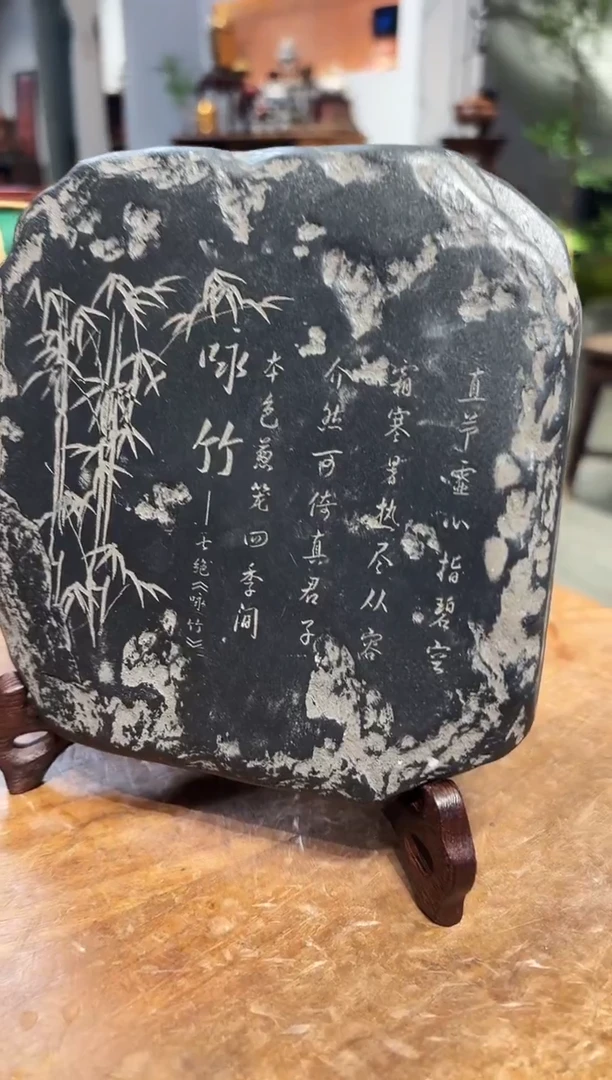 直节霊心指碧空
霜寒暑热尽从容
介然可倚真君子
本色葱笼四季间
咏竹
—七绝《咏竹》